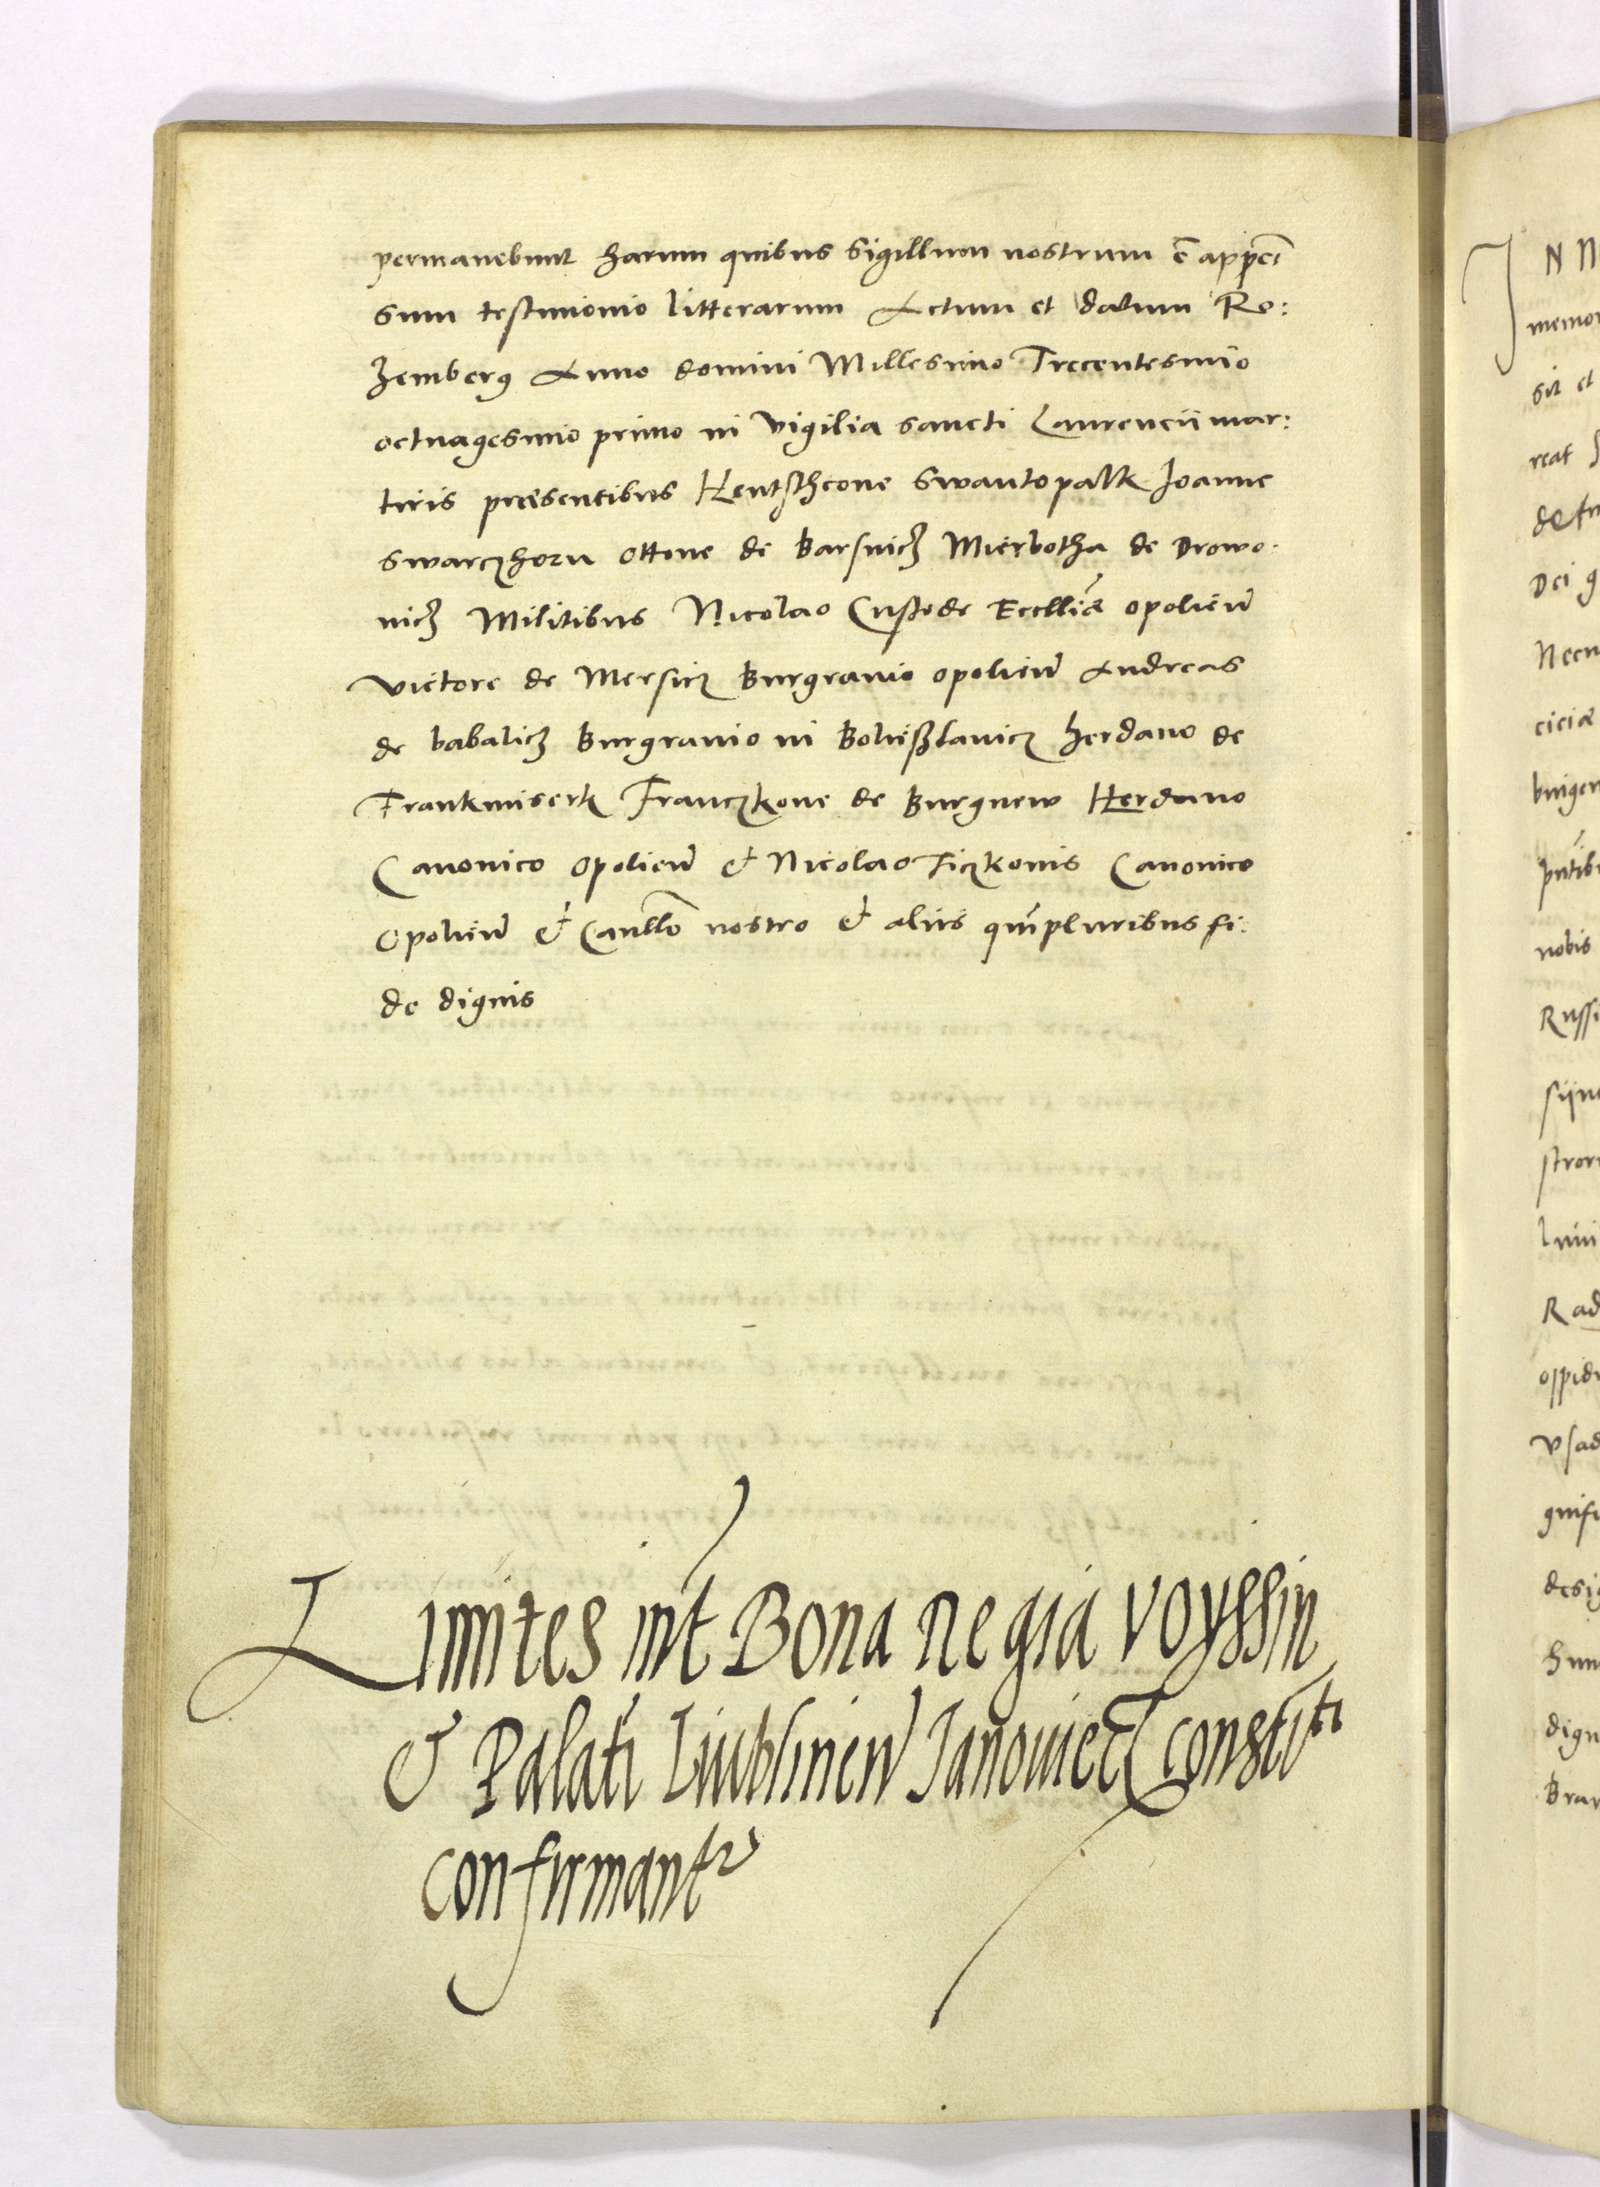 permanebunt harum quibus sigillum nostrum ē appen
sum testimonio litterarum Actum et datum Ro:
zemberg Anno domini Millesimo Trecentesimo
octuagesimo primo in vigilia sancti Laurencii mar:
tiris præsentibus Hentschcone Swantopalk Joanne
swarczhorn Ottone de Barsnicz Mierbotha de Drowo.
nicz Militibus Nicolao Custode Eccłłiæ opolieñ
Victore de Mersicz Burgravio opolieñ Andreas
de babalicz Burgravio in Bolißlavicz herdano de
Frankmisertz Franczkone de Burgnew Herdano
Canonico Opolieñ & Nicolao Ficzkonis Canonico
Opolieñ & Canłło nostro & aliis qm̃pluribus fi:
de dignis
Limites int Bona Regia Voyssin
& Palati Liublineñ Janoviec constiti
confirmantr
N N
memor
sit et
reat
Dei g
Necn
ciciæ
nobis
Russi
Rad
oppid
Vsad
desig
dign
Bran